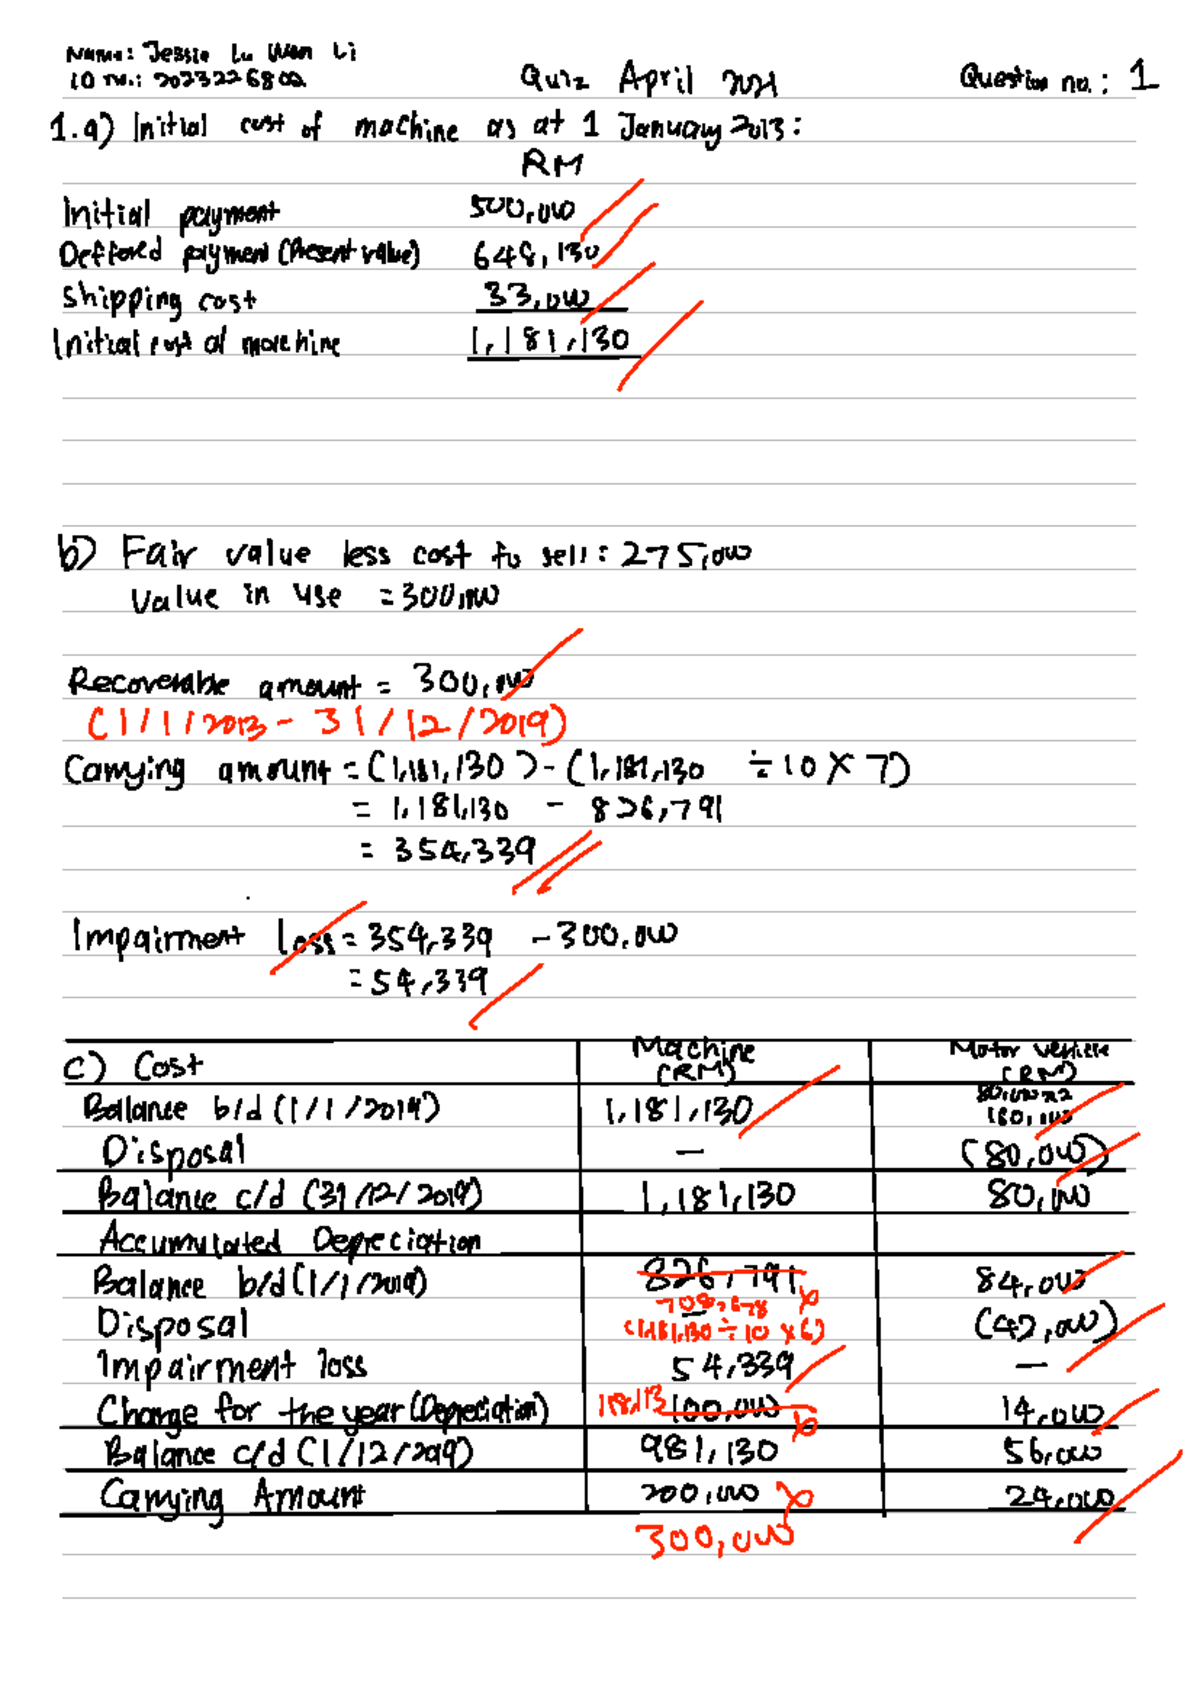 Name: Jessie Lu Wan Li
ID no.: 2023226802
Quiz April 2021
Question no.: 1
1.a) Initial cost of machine as at 1 January 2013:
RM
Initial payment 500,000
Deffored payment (Present value) 648,130
Shipping cost 33,000
Initial cost of machine 1,181,130
b) Fair value less cost to sell: 275,000
Value in use = 300,000
Recoverable amount = 300,000
(1/1/2013 - 31/12/2019)
Carrying amount = (1,181,130) - (1,181,130 ÷ 10 X 7)
= 1,181,130 - 826,791
= 354,339
Impairment loss = 354,339 - 300,000
= 54,339
c) Cost Machine (RM) Motor vehicle (RM)
80,000 x 2
Balance b/d (1/1/2019) 1,181,130 160,000
Disposal — (80,000)
Balance c/d (31/12/2019) 1,181,130 80,000
Accumulated Depreciation
Balance b/d (1/1/2019) 826,791 84,000
708,678
Disposal — (42,000)
(1,181,130 ÷ 10 x 6)
Impairment loss 54,339 —
Charge for the year (Depreciation) 118,113 100,000 14,000
Balance c/d (1/12/2019) 981,130 56,000
Carrying Amount 200,000 24,000
300,000